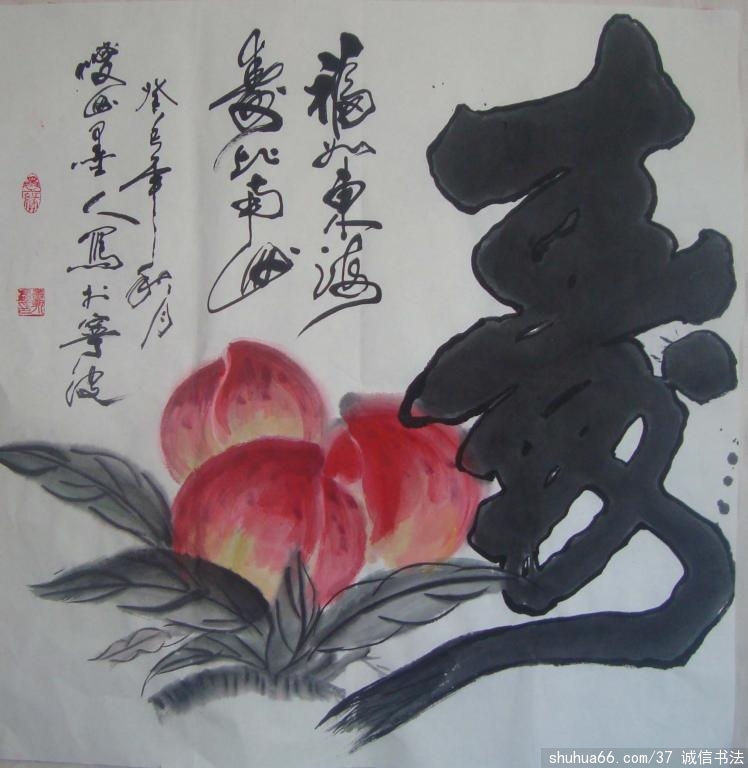 壽
福如東海
壽比南山
癸巳年之秋月
山墨人寫於寧波
shuhua66.com/37 诚信书法